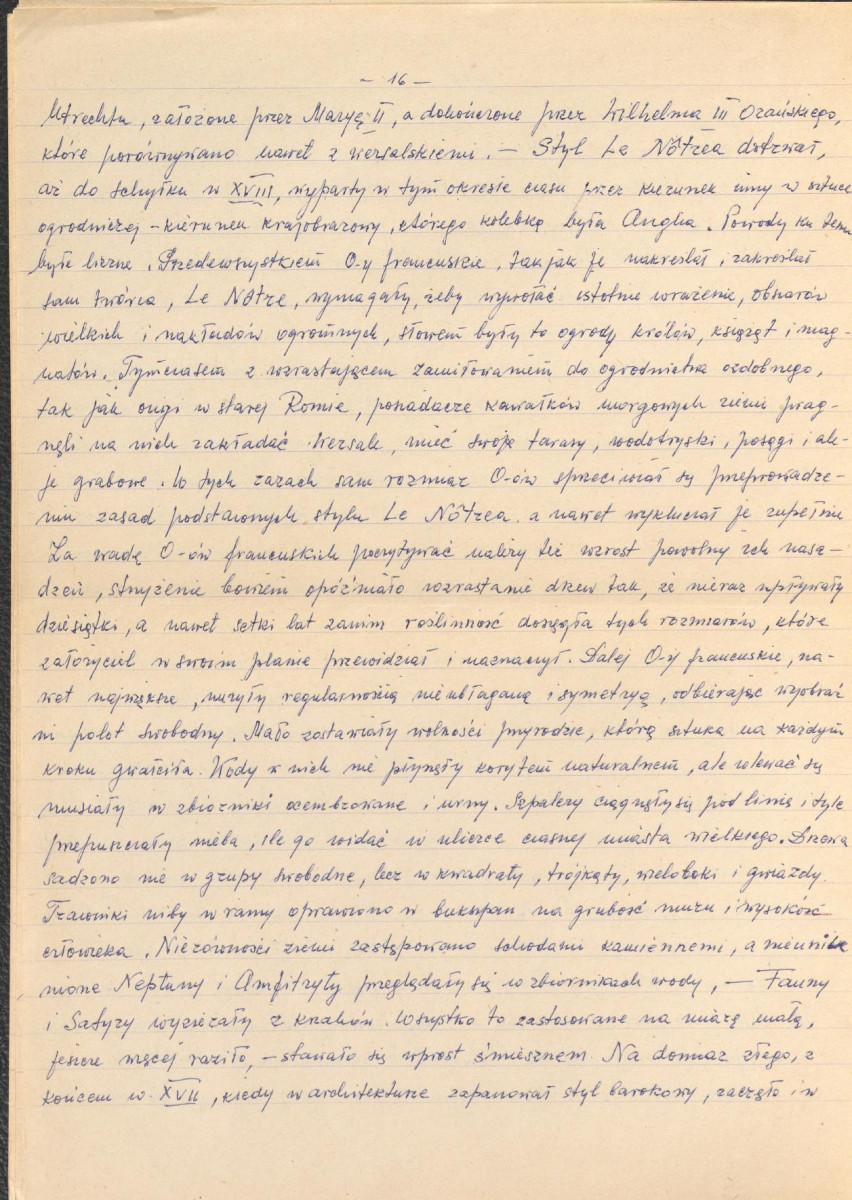 - 16 -
Utrechtu, założone przez Maryę II, a dokończone przez Wilhelma III Orańskiego,
które porównywano nawet z wersalskiemi. - Styl Le Nôtrea dotrwał,
aż do schyłku w XVIII, wyparty w tym okresie czasu przez kierunek inny w sztuce
ogrodniczej - kierunek krajobrazowy, którego kolebką była Anglia. Powody ku temu
były liczne. Przedewszystkiem O-y francuskie, tak jak je nakreślał i zakreślał
sam twórca, Le Nôtre, wymagały, żeby wywołać istotnie wrażenie, obszarów
wielkich i nakładów ogromnych, słowem były to ogrody królów, książąt i mag-
natów. Tymczasem z wzrastającem zamiłowaniem do ogrodnictwa ozdobnego,
tak jak ongi w starej Romie, posiadacze kawałków morgowych ziemi prag-
nęli na nich zakładać Wersale, mieć swoje tarasy, wodotryski, posągi i ale-
je grabowe. W tych razach sam rozmiar O-ów sprzeciwiał się przeprowadze-
niu zasad podstawowych stylu Le Nôtrea a nawet wykluczał je zupełnie
Za wadę O-ów francuskich poczytywać należy też wzrost powolny ich nasa-
dzeń, strzyżenie bowiem opóźniało wzrastanie drzew tak, że nieraz upływały
dziesiątki, a nawet setki lat zanim roślinność dosięgła tych rozmiarów, które
założyciel w swoim planie przewidział i naznaczył. Dalej O-y francuskie, na-
wet największe, nużyły regularnością nieubłaganą i symetryą, odbierając wyobraź
ni polot swobodny. Mało zostawiały wolności przyrodzie, którą sztuka na każdym
kroku gwałciła. Wody w nich nie płynęły korytem naturalnem, ale wlewać się
musiały w zbiorniki ocembrowane i urny. Szpalery ciągnęły się pod linię i tyle
przepuszczały nieba, ile go widać w uliczce ciasnej miasta wielkiego. Drzewa
sadzono nie w grupy swobodne, lecz w kwadraty, trójkąty, wieloboki i gwiazdy.
Trawniki niby w ramy oprawiono w bukszpan na grubość muru i wysokość
człowieka. Nierówności ziemi zastępowano schodami kamiennemi, a nieunik
nione Neptuny i Amfitryty przeglądały się w zbiornikach wody, - Fauny
i Satyry wyzierały z krzaków. Wszystko to zastosowane na miarę małą,
jeszcze więcej raziło, - stawało się wprost śmiesznem. Na domiar złego, z
końcem w. XVII, kiedy w architekturze zapanował styl barokowy, zaczęto i w